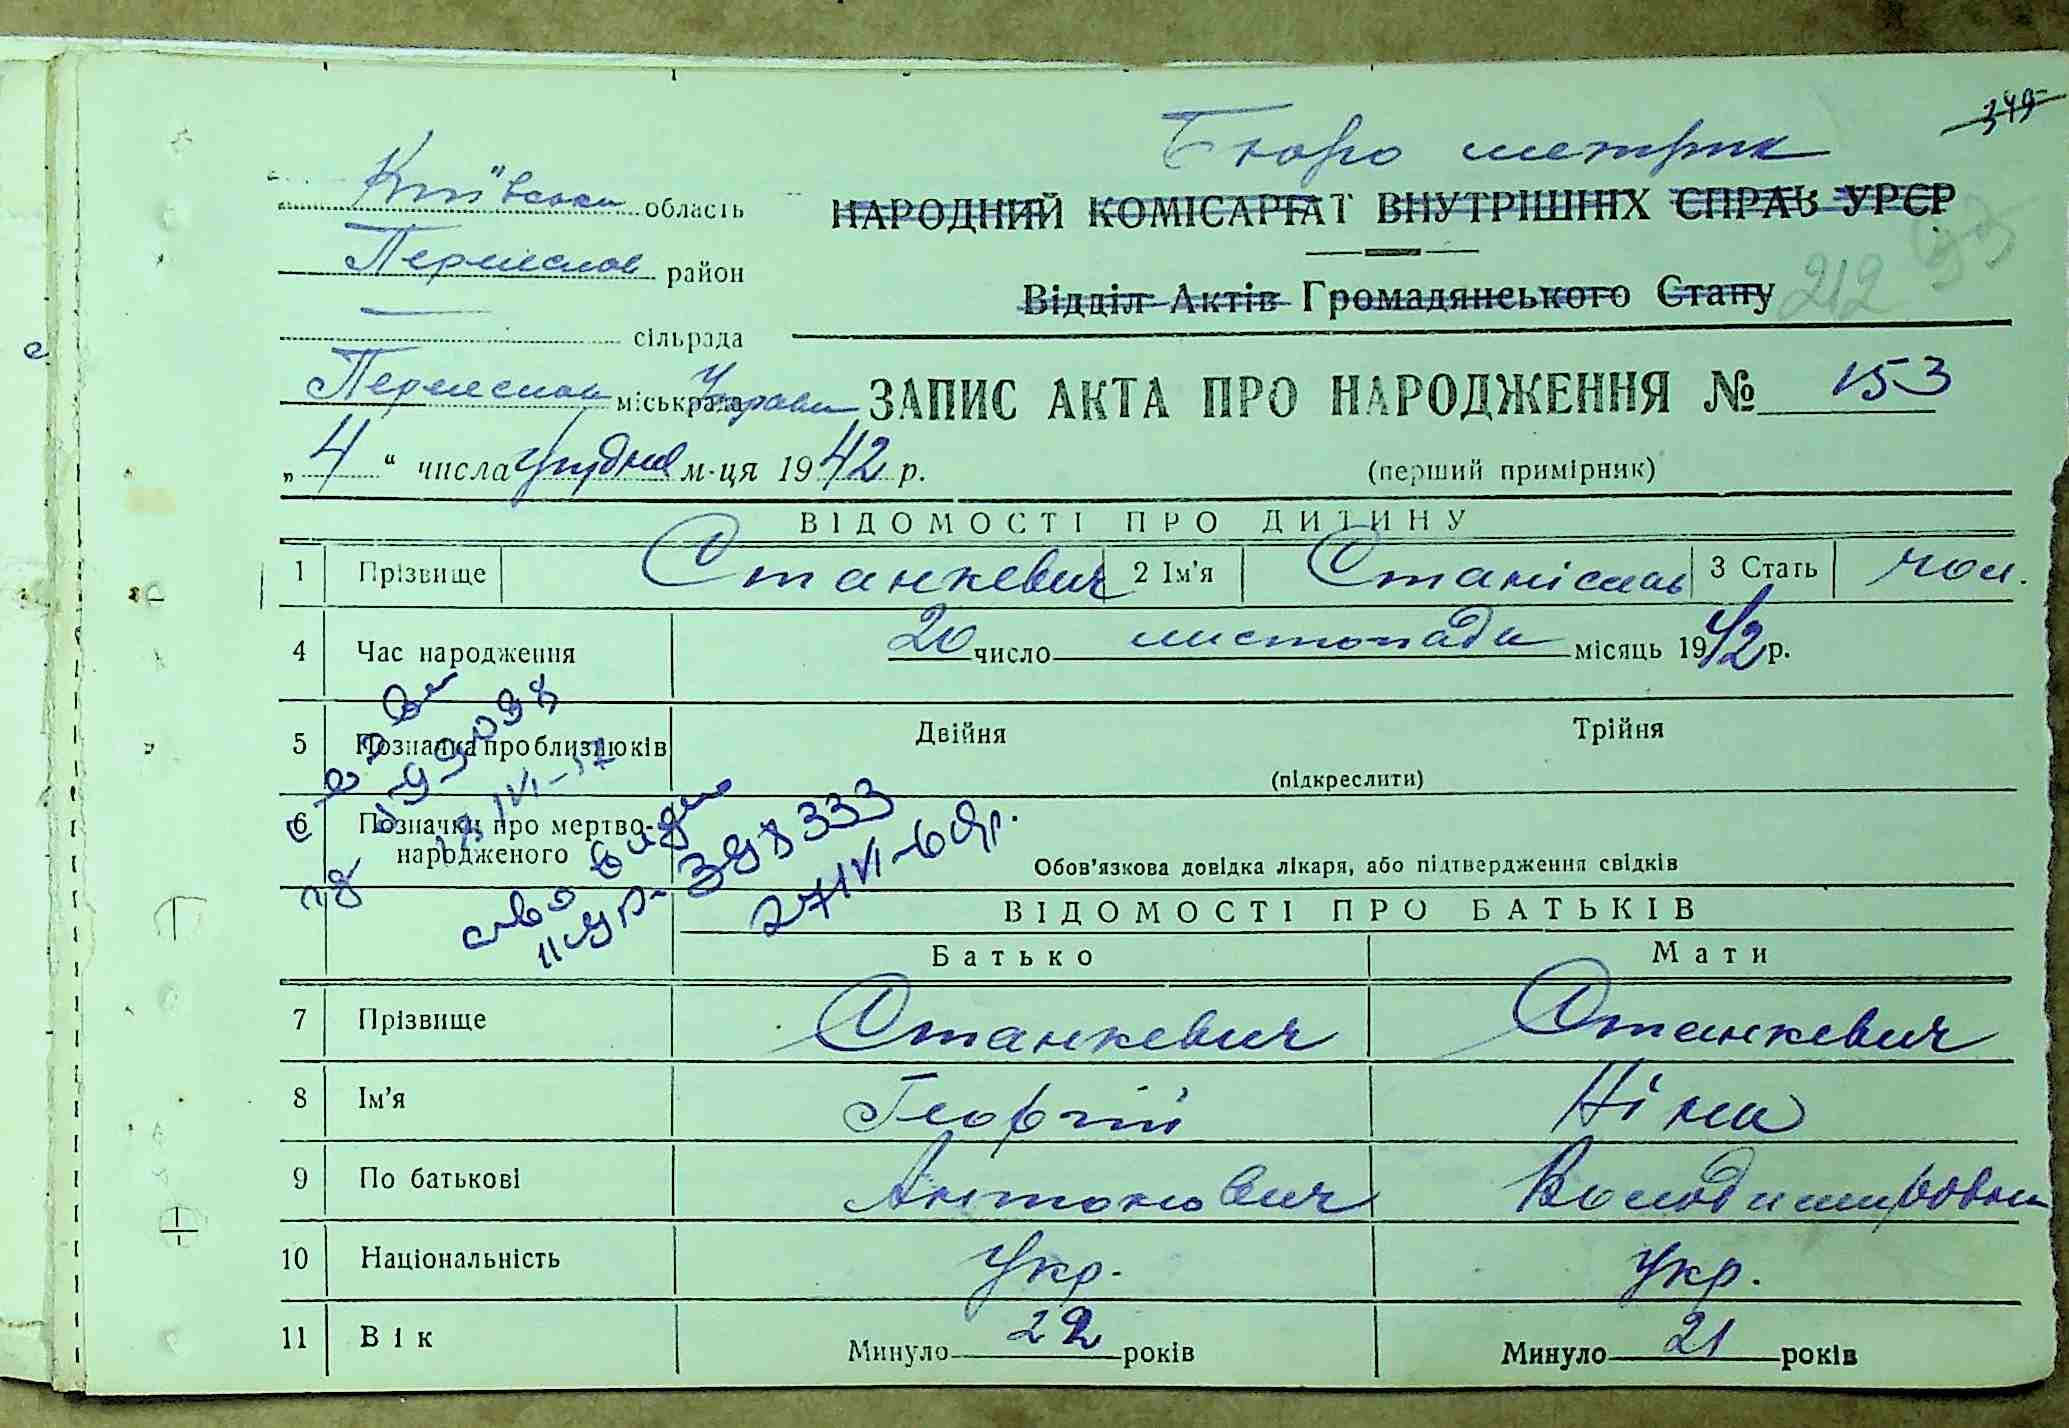 349
Бюро метрик
Київська область
НАРОДНИЙ КОМІСАРІАТ ВНУТРІШНІХ СПРАВ УРСР
Переяслав район
Відділ Актів Громадянського Стану 212
сільрада
Переяслав міськрада Управа
ЗАПИС АКТА ПРО НАРОДЖЕННЯ № 153
„4“ числа грудня м-ця 1942 р.
(перший примірник)
ВІДОМОСТІ ПРО ДИТИНУ
1 Прізвище Станкевич 2 Ім'я Станіслав 3 Стать чол.
4 Час народження 20 число листопада місяць 1942 р.
5 Позначка про близнюків Двійня Трійня
(підкреслити)
6 Позначки про мертво-
народженого
Обов'язкова довідка лікаря, або підтвердження свідків
св-во видано
398333
27/VI-60р.
ВІДОМОСТІ ПРО БАТЬКІВ
Батько Мати
7 Прізвище Станкевич Станкевич
8 Ім'я Георгій Ніна
9 По батькові Антонович Володимировна
10 Національність Укр. Укр.
11 Вік Минуло 22 років Минуло 21 років